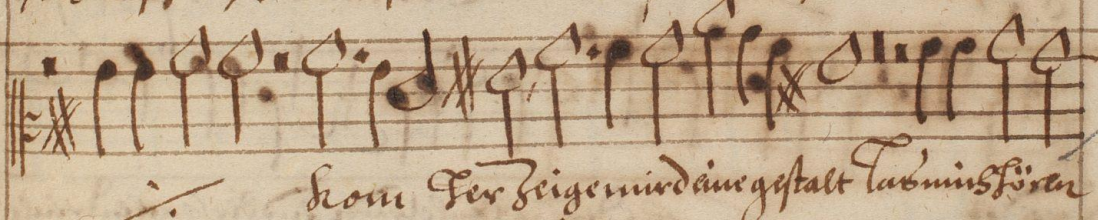 Kom her zeige mir deine gestalt las mich hören